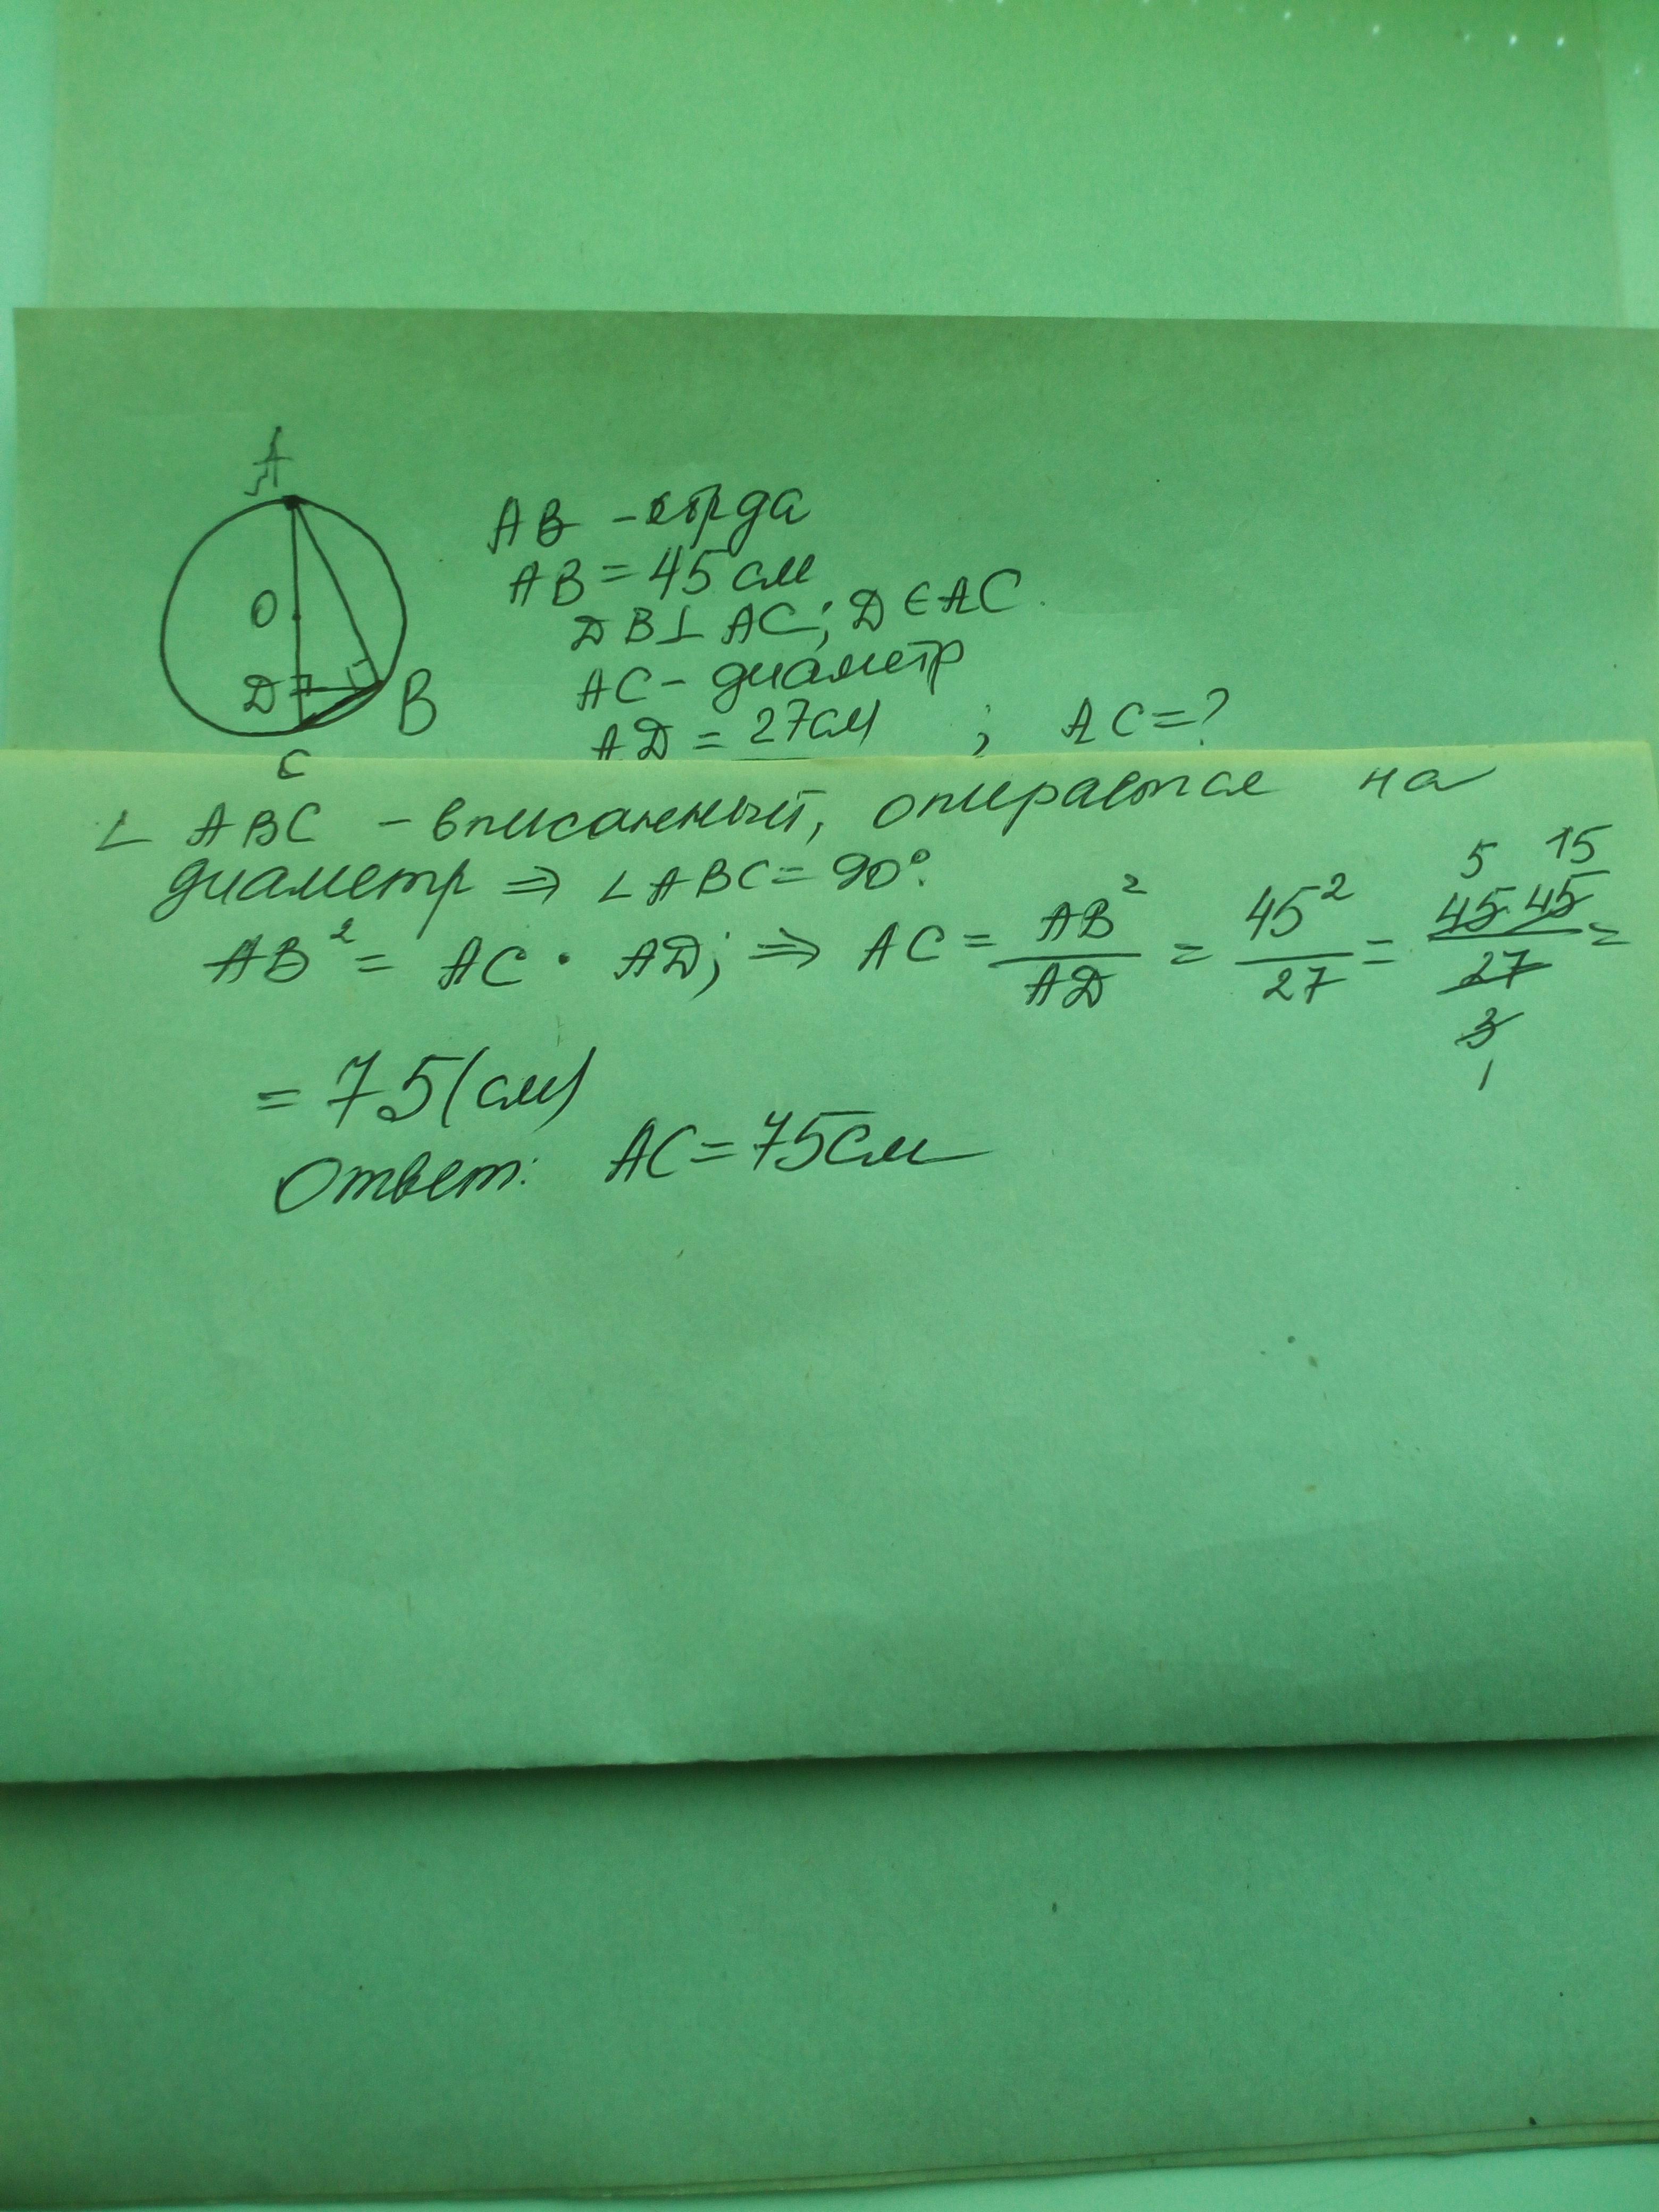 A
O
D
B
C
AB - хорда
AB = 45 см
DB ⊥ AC; D ∈ AC
AC - диаметр
AD = 27 см ; AC = ?
∠ ABC - вписанный, опирается на
диаметр ⇒ ∠ABC = 90°.
AB² = AC · AD; ⇒ AC = AB²/AD = 45²/27 = 45·45/27 =
5 15
3
1
= 75 (см)
Ответ: AC = 75 см